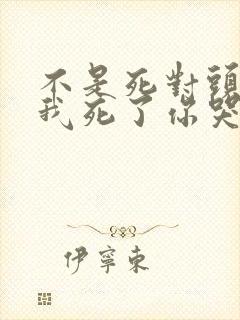 不是死對頭
我死了你哭
伊寧東